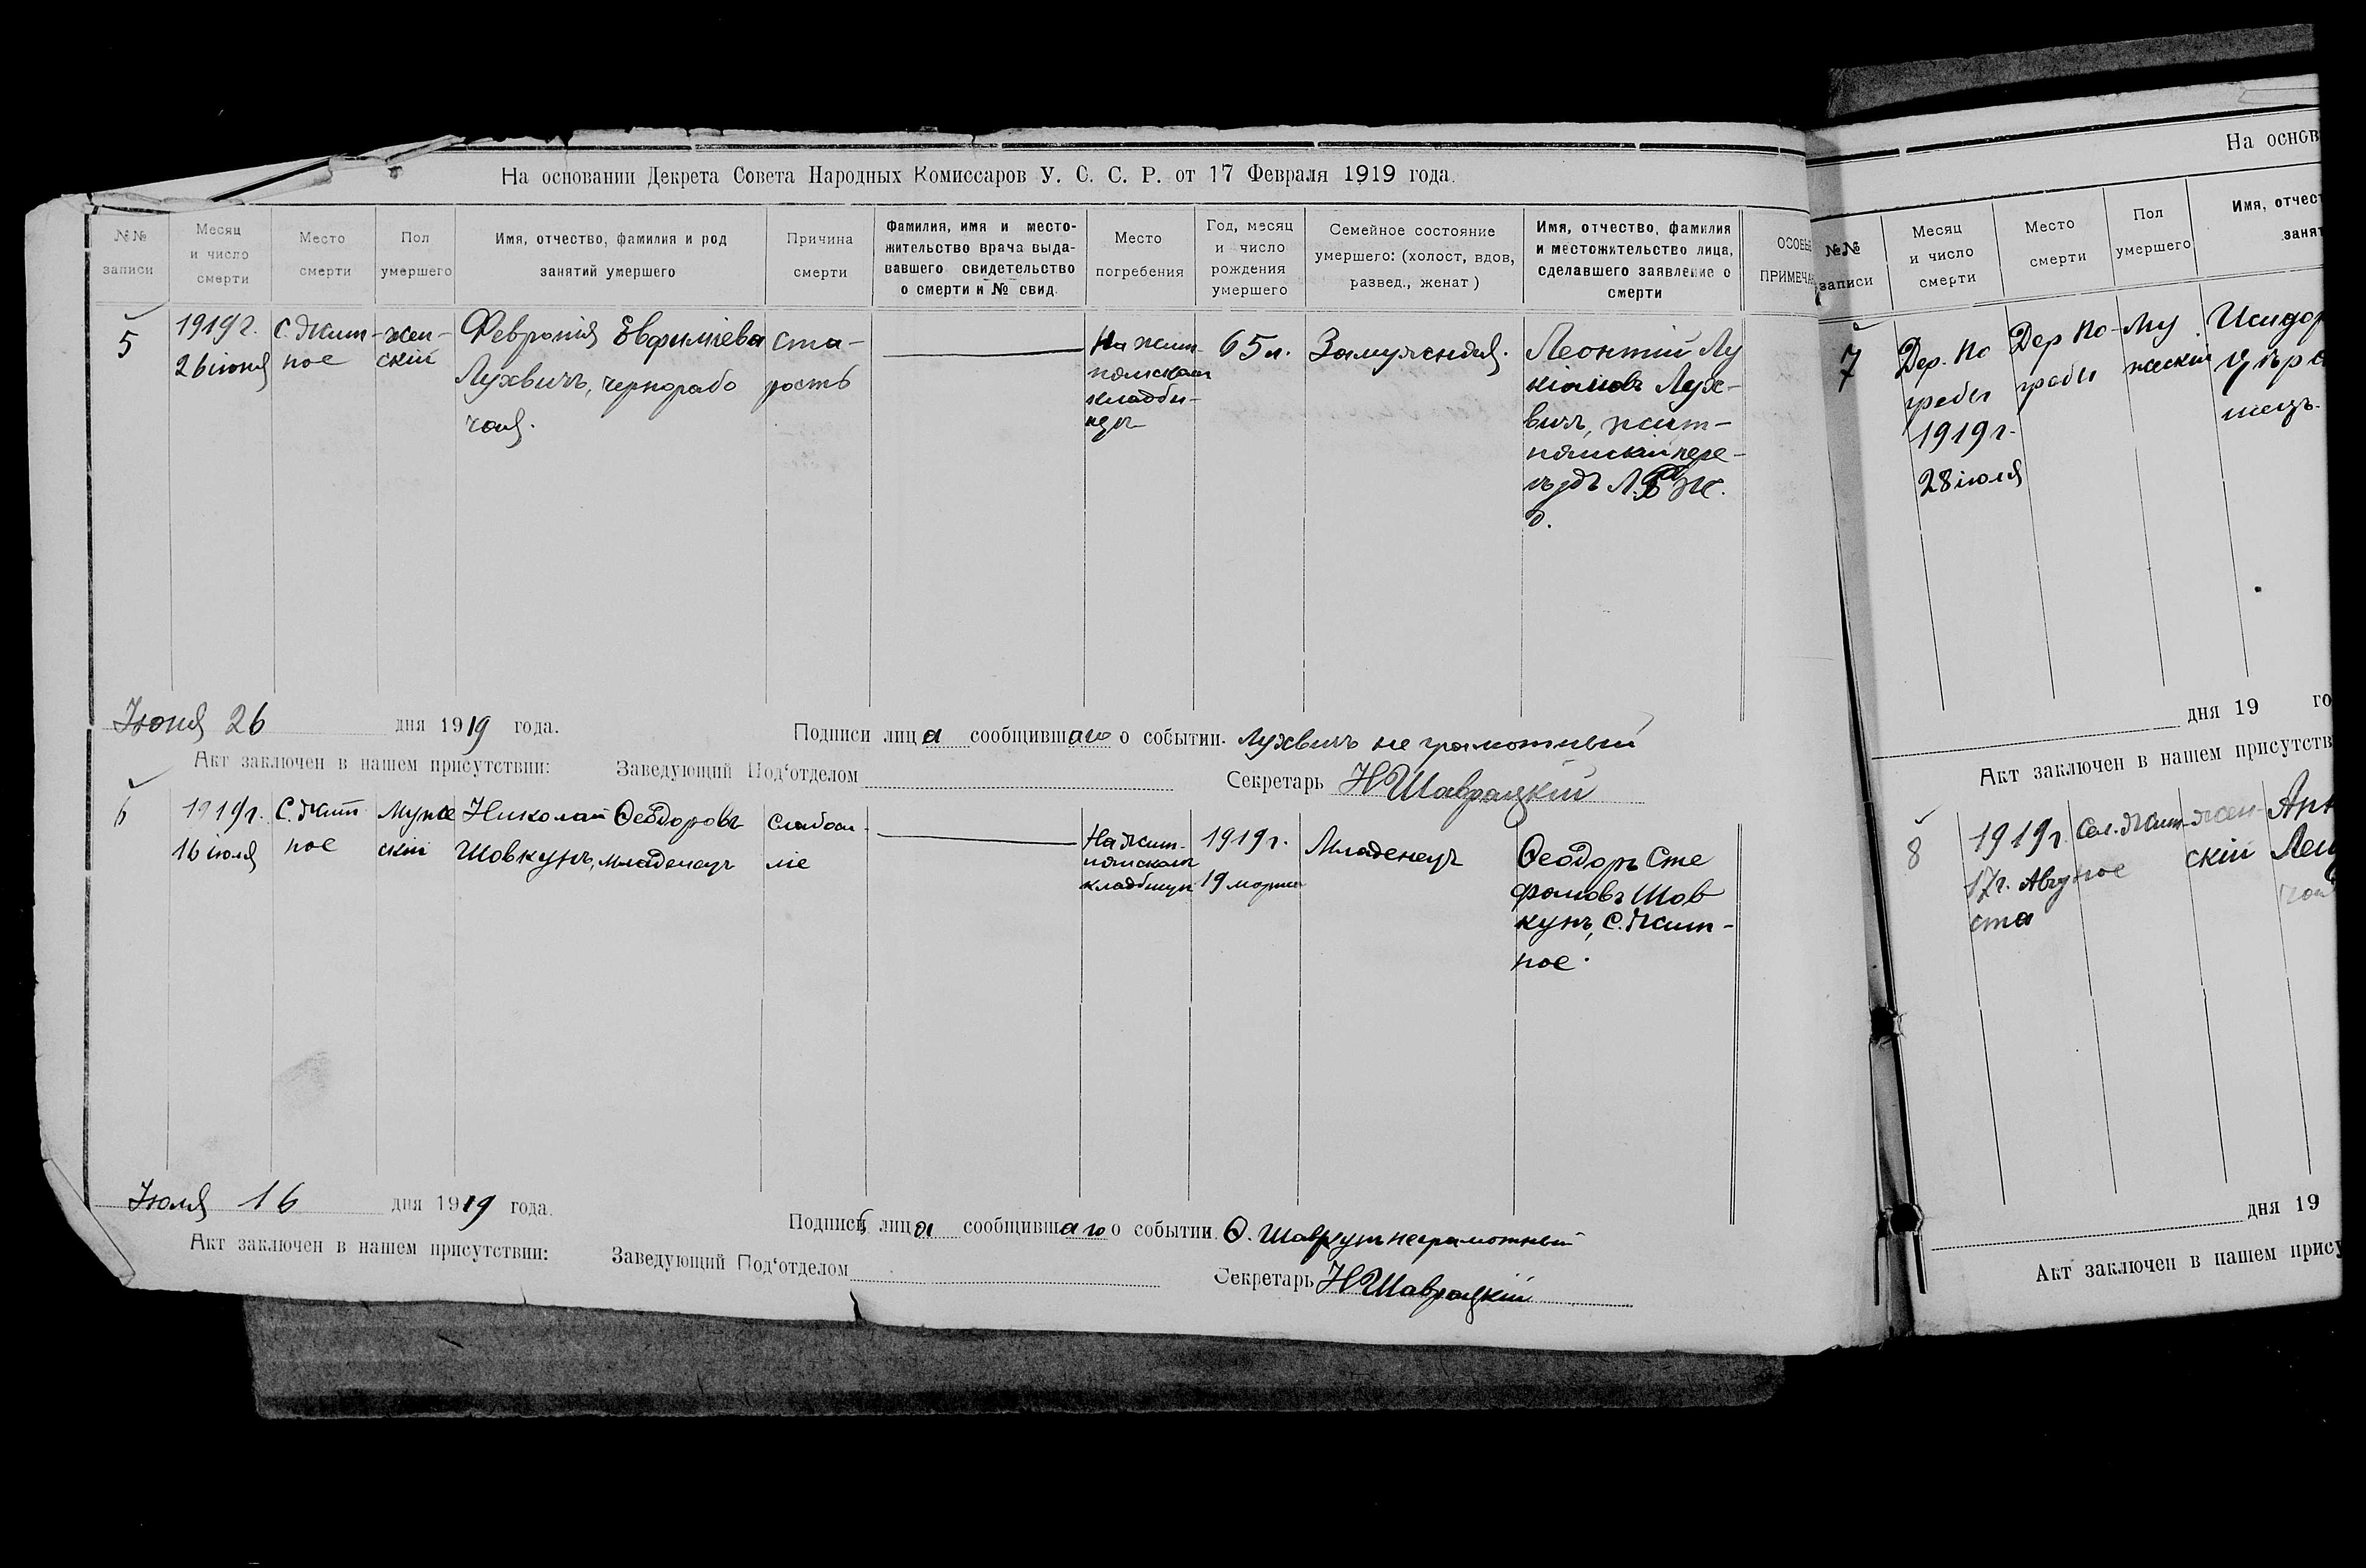 На основании Декрета Совета Народных Комиссаров У. С. С. Р. от 17 Февраля 1919 года.
№№ записи
Месяц и число смерти
Место смерти
Пол умершего
Имя, отчество, фамилия и род занятий умершего
Причина смерти
Фамилия, имя и место-жительство врача выда-вавшего свидетельство о смерти и № свид.
Место погребения
Год, месяц и число рождения умершего
Семейное состояние умершего: (холост, вдов, развед., женат)
Имя, отчество, фамилия и местожительство лица, сделавшего заявление о смерти
ОСОБЫ
ПРИМЕЧА
5
1919 г.
26 іюня
С. Жит-
ное
жен-
скій
Феврониія Евфиміева
Лухвичъ, чернорабо
чая.
ста-
рость
На жит-
нянском
кладби-
щѣ
65 л.
Замужняя.
Леонтій Лу
кіановъ Лух-
вичъ, жит-
нянскій пере-
ѣздъ Л. Р. Ж.
д.
Іюня 26 дня 1919 года.
Подписи лица сообщившаго о событии. Лухвичъ не грамотный
Акт заключен в нашем присутствии: Заведующий Под'отделом Секретарь Н Шаврацкій
6
1919 г.
16 іюля
С. Жит
ное
Муже
скій
Николай Ѳеодоровъ
Шовкунъ, младенецъ
Слабоси-
ліе
На жит-
нянском
кладбищѣ
1919 г.
19 марта
Младенецъ
Ѳеодоръ Сте
фановъ Шов
кунъ, С. Жит-
ное.
Іюля 16 дня 1919 года.
Подписи лица сообщившаго о событии. Ѳ. Шовкунъ неграмотный
Акт заключен в нашем присутствии: Заведующий Под'отделом Секретарь Н Шаврацкій
На основ
№№ записи
Месяц и число смерти
Место смерти
Пол умершего
Имя, отчест
занят
7
Дер. По
гребы
1919 г.
28 іюля
Дер По-
гребы
Му
жескій
Исидор
дня 19 го
Акт заключен в нашем присутств
8
1919 г.
17 г. Авгу
ста
Сел. Жит-
ное
жен-
скій
дня 19
Акт заключен в нашем прису